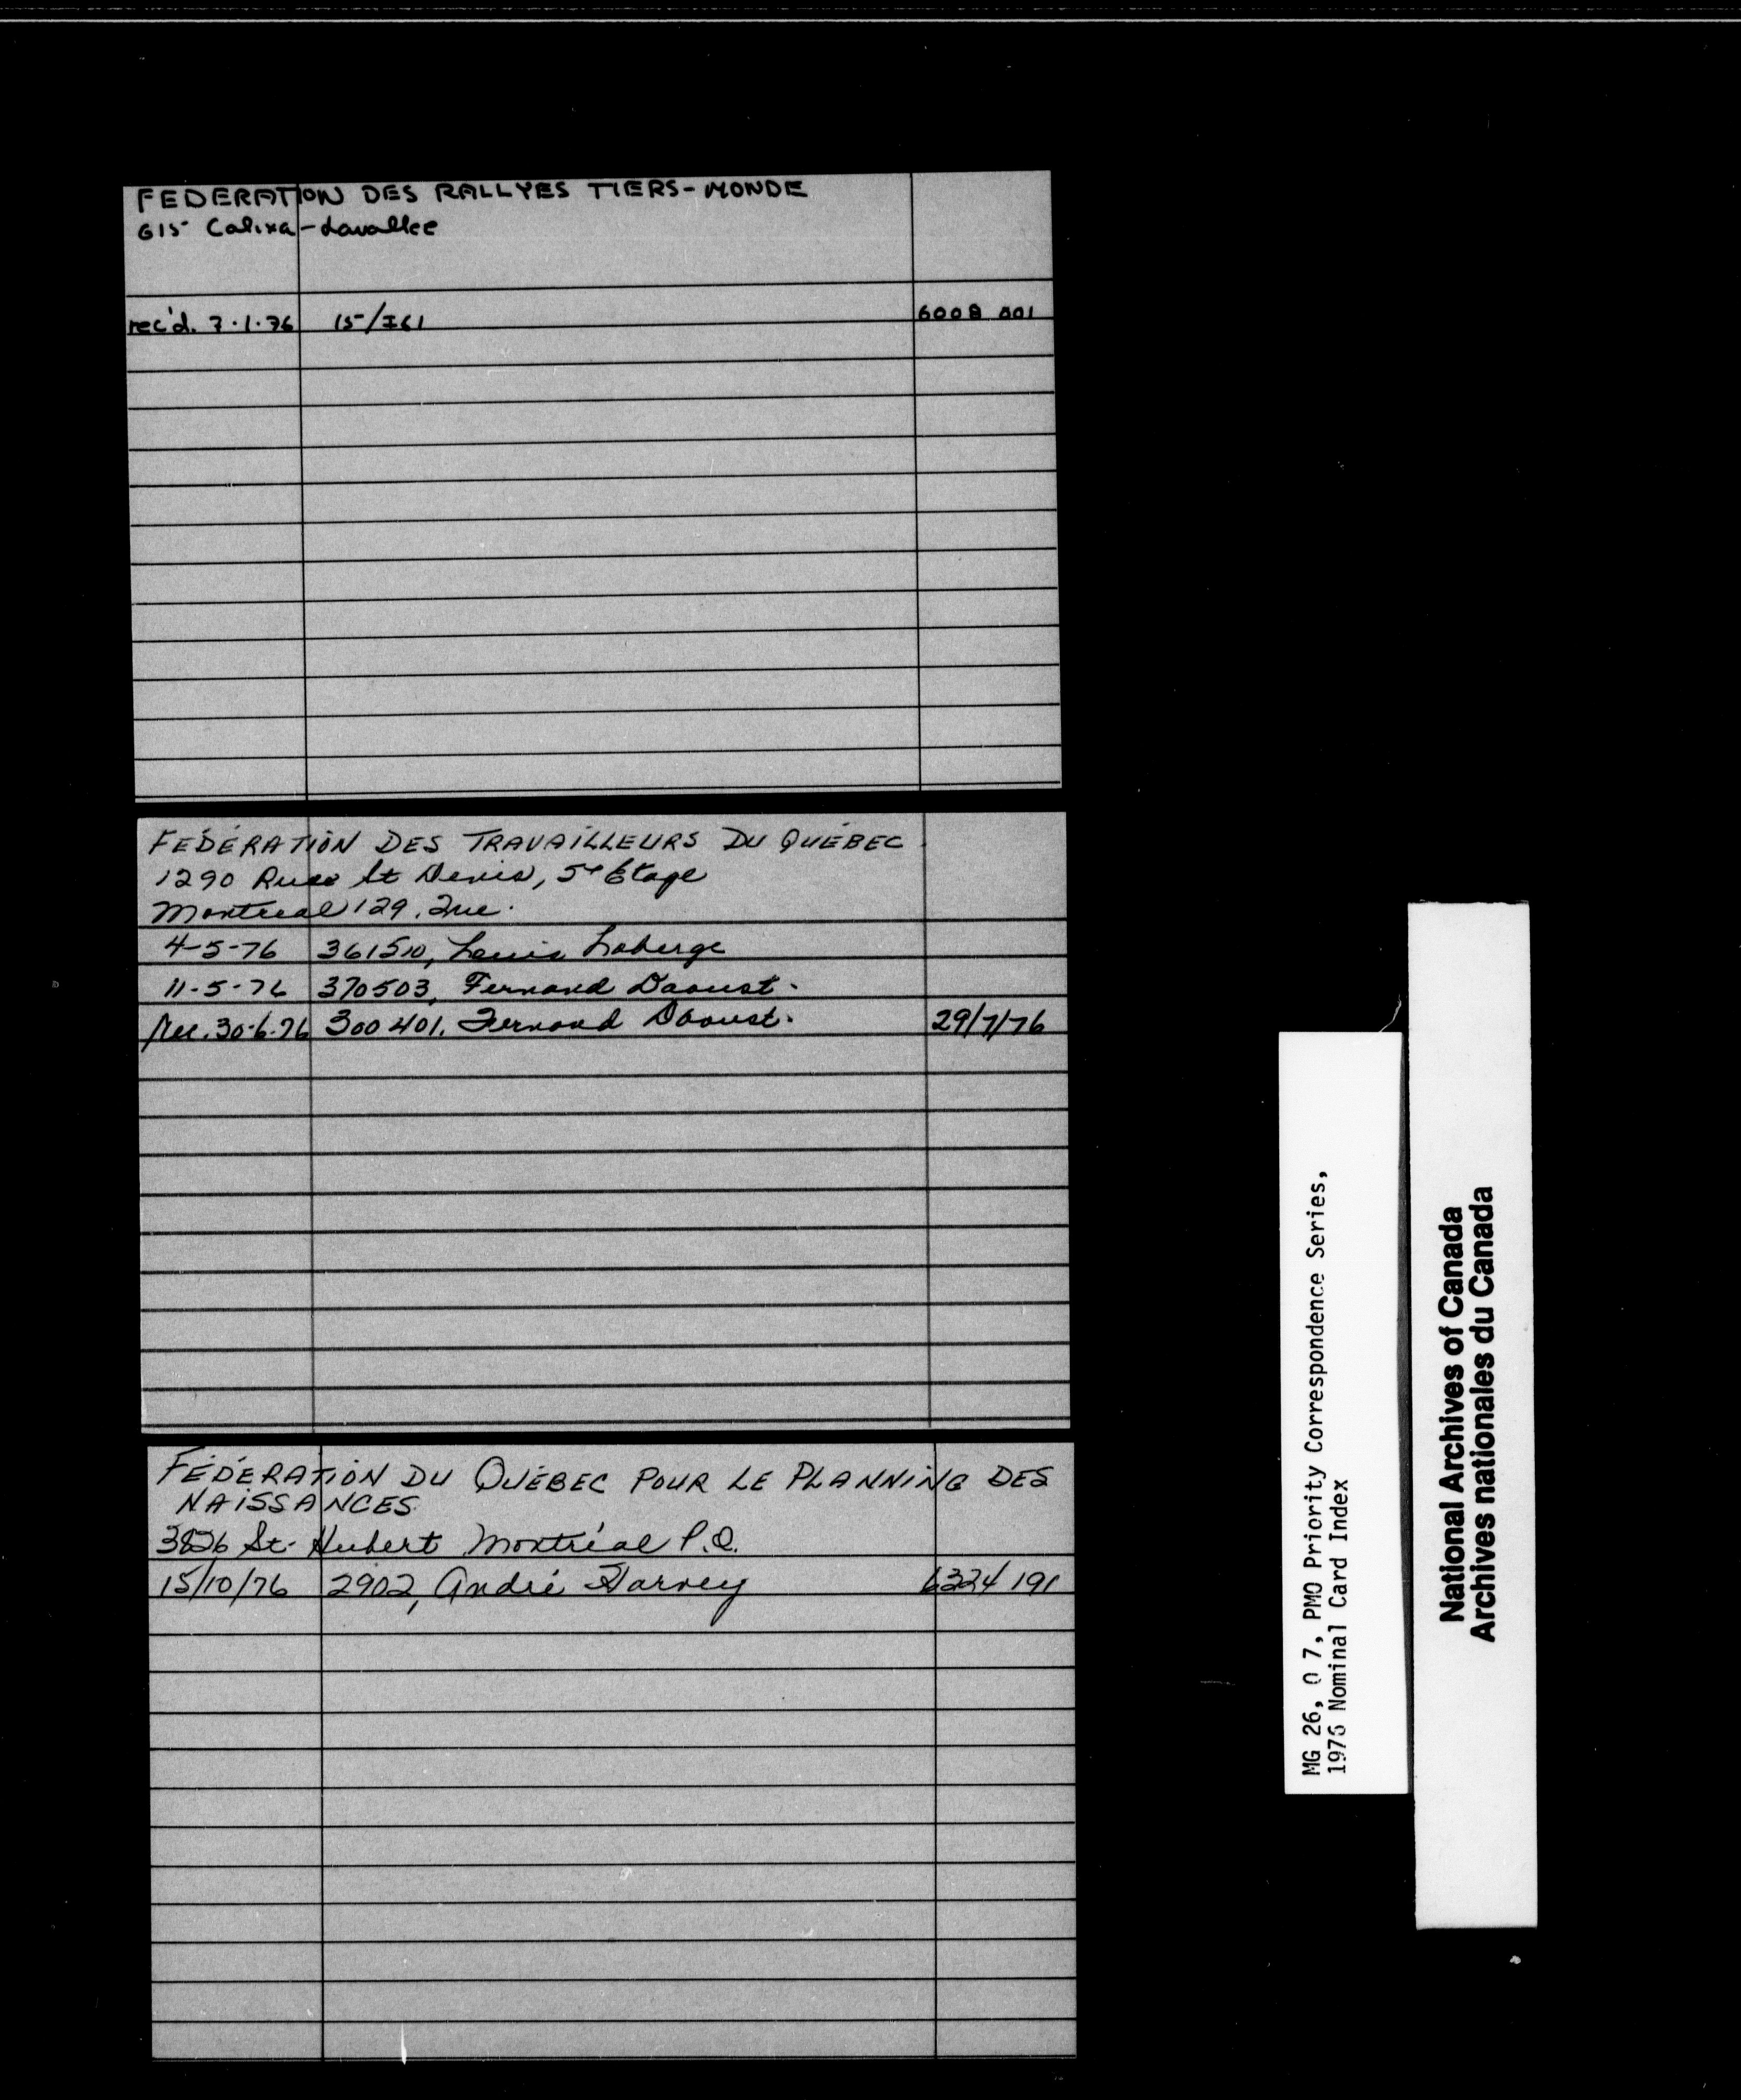 FEDERATION DES RALLYES TIERS-MONDE
615 Calixa-Lavallee
rec'd. 7.1.76 15/I61 6008 001
FÉDÉRATION DES TRAVAILLEURS DU QUÉBEC
1290 Rue St Denis, 5e Etage
Montreal 129, Que.
4-5-76 361510, Louis Laberge
11-5-76 370503, Fernand Daoust.
Rec. 30-6-76 300401, Fernand Daoust. 29/7/76
FÉDÉRATION DU QUÉBEC POUR LE PLANNING DES
NAISSANCES
3826 St-Hubert Montréal P.Q.
15/10/76 2902, André Harvey 6324 191
MG 26, O 7, PMO Priority Correspondence Series,
1976 Nominal Card Index
National Archives of Canada
Archives nationales du Canada